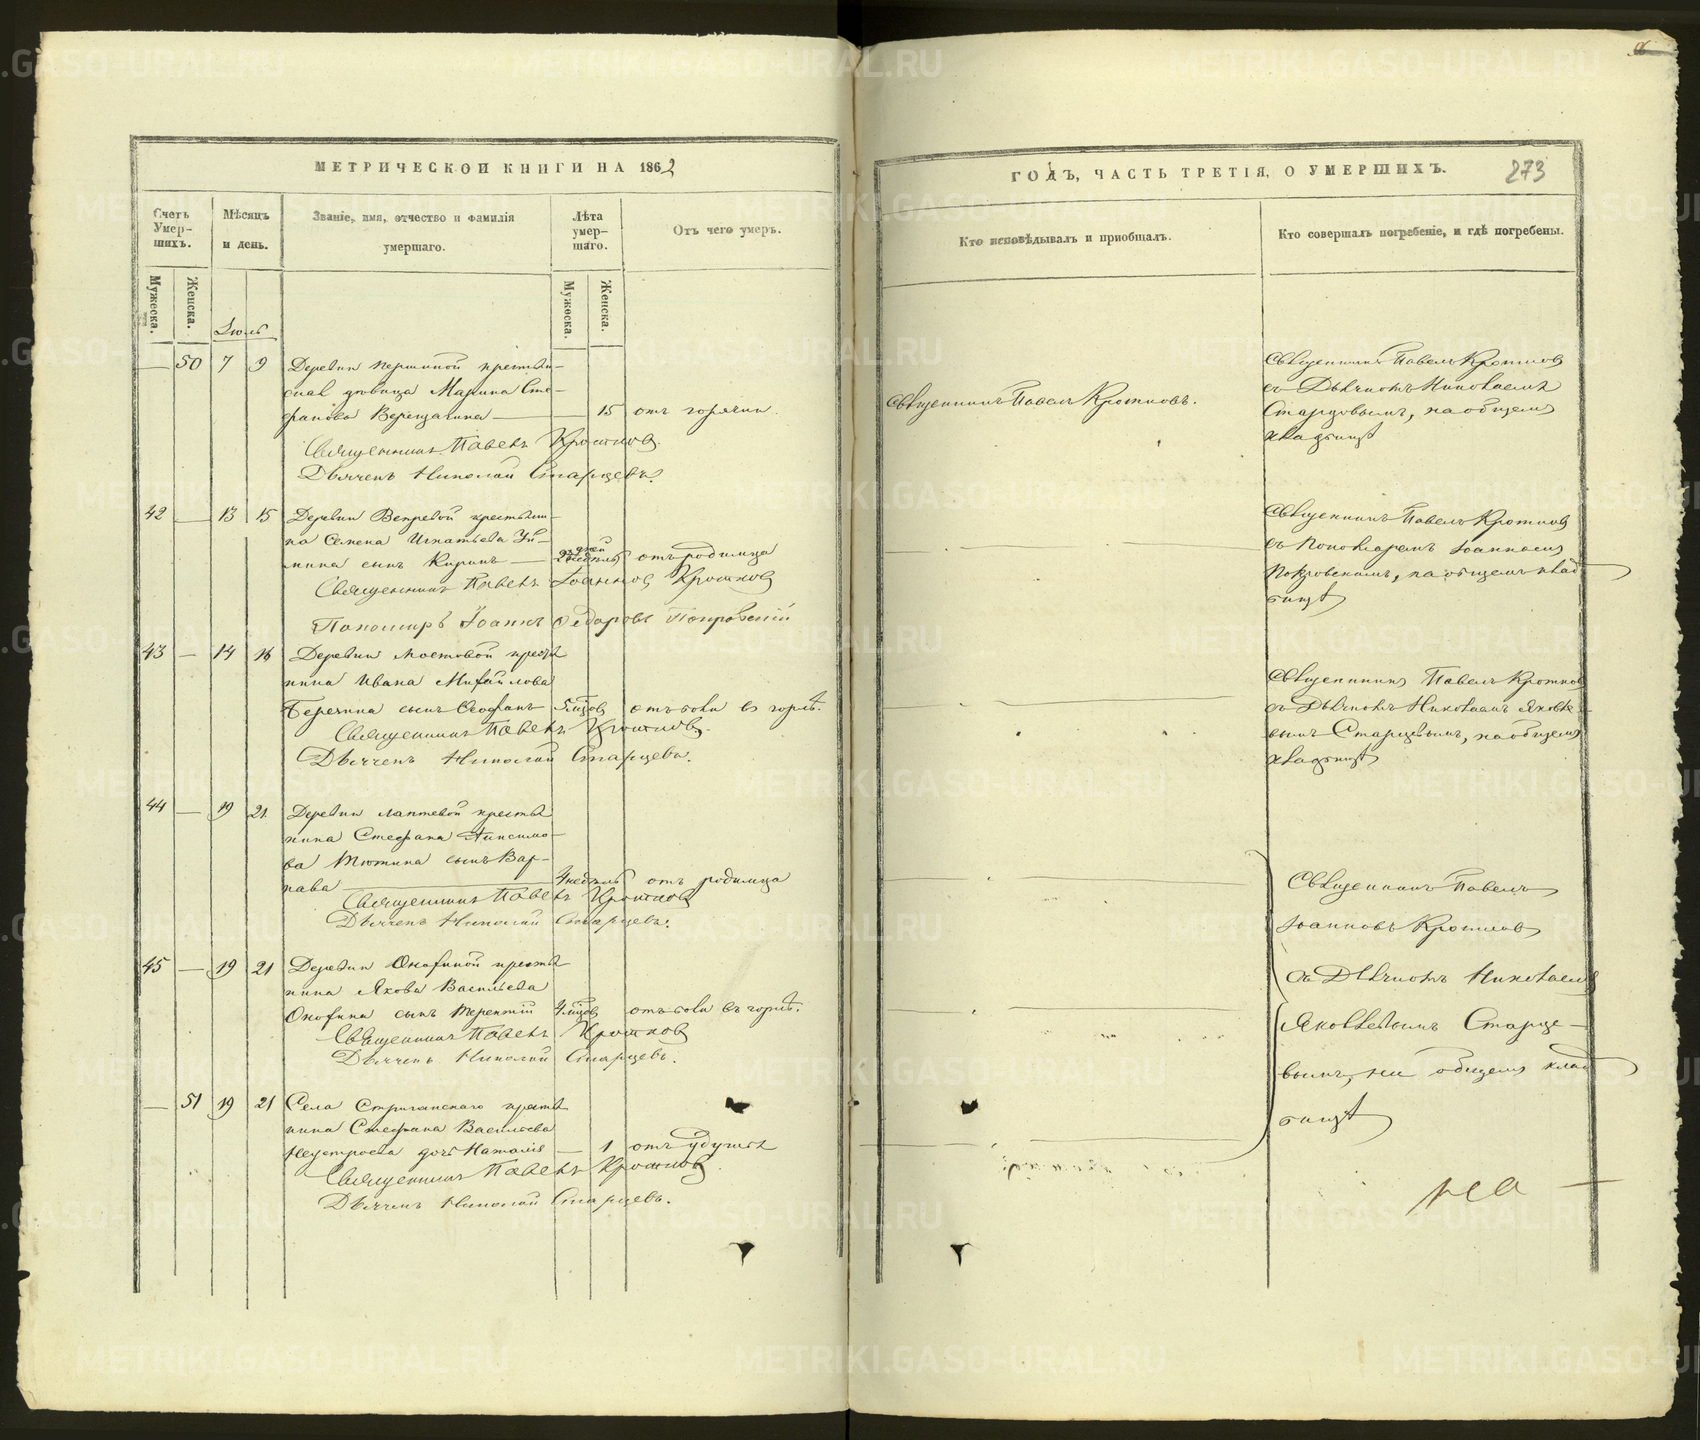 МЕТРИЧЕСКОЙ КНИГИ НА 1862
Счетъ Умер-шихъ.
Мѣсяцъ и день.
Званіе, имя, отчество и фамилія умершаго.
Лѣта умер-шаго.
Отъ чего умеръ.
Мужеска.
Женска.
Мужеска.
Женска.
Іюль
— 50 7 9 Деревни Першиной крестьян-
ская дѣвица Марина Сте-
фанова Верещагина — — 15 отъ горячки.
Священникъ Павелъ Кротковъ.
Дьячекъ Николай Старцевъ.
42 — 13 15 Деревни Вепревой крестьяни-
на Семена Игнатьева
сынъ Киринъ — отъ родимца
Священникъ Павелъ Іоанновъ Кротковъ
Пономарь Іоаннъ Федоровъ Покровскій
43 — 14 16 Деревни Мостовой кресть-
нина Ивана Михайлова
сынъ Феофанъ отъ боли въ горлѣ.
Священникъ Павелъ Кротковъ.
Дьячекъ Николай Старцевъ.
44 — 19 21. Деревни Лаптевой кресть-
нина Стефана Анисимо-
ва Тютина сынъ Вар-
нава — 4 недѣль отъ родимца
Священникъ Павелъ Кротковъ
Дьячекъ Николай Старцевъ.
45 — 19 21 Деревни Онохиной кресть-
нина Якова Васильева
Онохина сынъ Терентій отъ боли въ горлѣ.
Священникъ Павелъ Кротковъ
Дьячекъ Николай Старцевъ.
— 51 19 21 Села Стриганскаго кресть-
нина Стефана Васильева
Неустроева дочь Наталія — 1 отъ удушья
Священникъ Павелъ Кротковъ.
Дьячекъ Николай Старцевъ.
ГОДЪ, ЧАСТЬ ТРЕТІЯ, О УМЕРШИХЪ.
273
Кто исповѣдывалъ и пріобщалъ.
Кто совершалъ погребеніе, и гдѣ погребены.
Священникъ Павелъ Кротковъ.
Священникъ Павелъ Кротковъ
съ Дьячкомъ Николаемъ
Старцовымъ, на общемъ
кладбищѣ
Священникъ Павелъ Кротковъ
съ Пономаремъ Іоанномъ
Покровскимъ, на общемъ клад-
бищѣ
Священникъ Павелъ Кротковъ
съ Дьячкомъ Николаемъ Яковле-
вымъ Старцевымъ, на общемъ
кладбищѣ
Священникъ Павелъ
Іоанновъ Кротковъ
съ Дьячкомъ Николаемъ
Яковлевымъ Старце-
вымъ, на общемъ клад-
бищѣ
METRIKI.GASO-URAL.RU